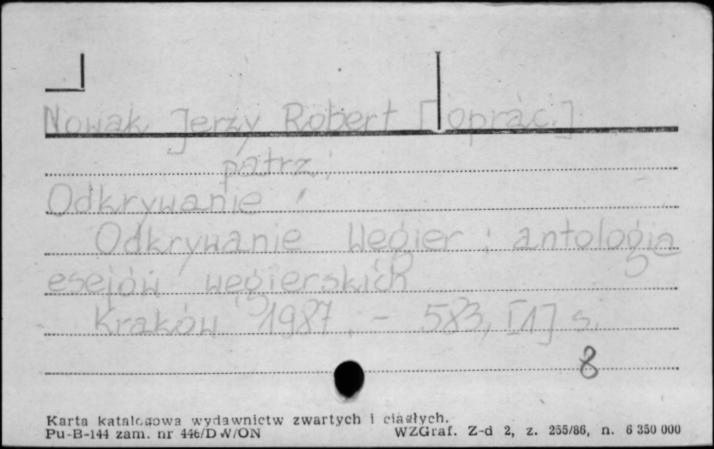 Nowak Jerzy Robert [oprac.]
patrz:
Odkrywanie
Odkrywanie Węgier : antologia
esejów węgierskich
Kraków 1987. - 583, [1] s.
8
Karta katalogowa wydawnictw zwartych i ciągłych.
Pu-B-144 zam. nr 446/DW/ON WZGraf. Z-d 2, z. 255/86, n. 6 350 000